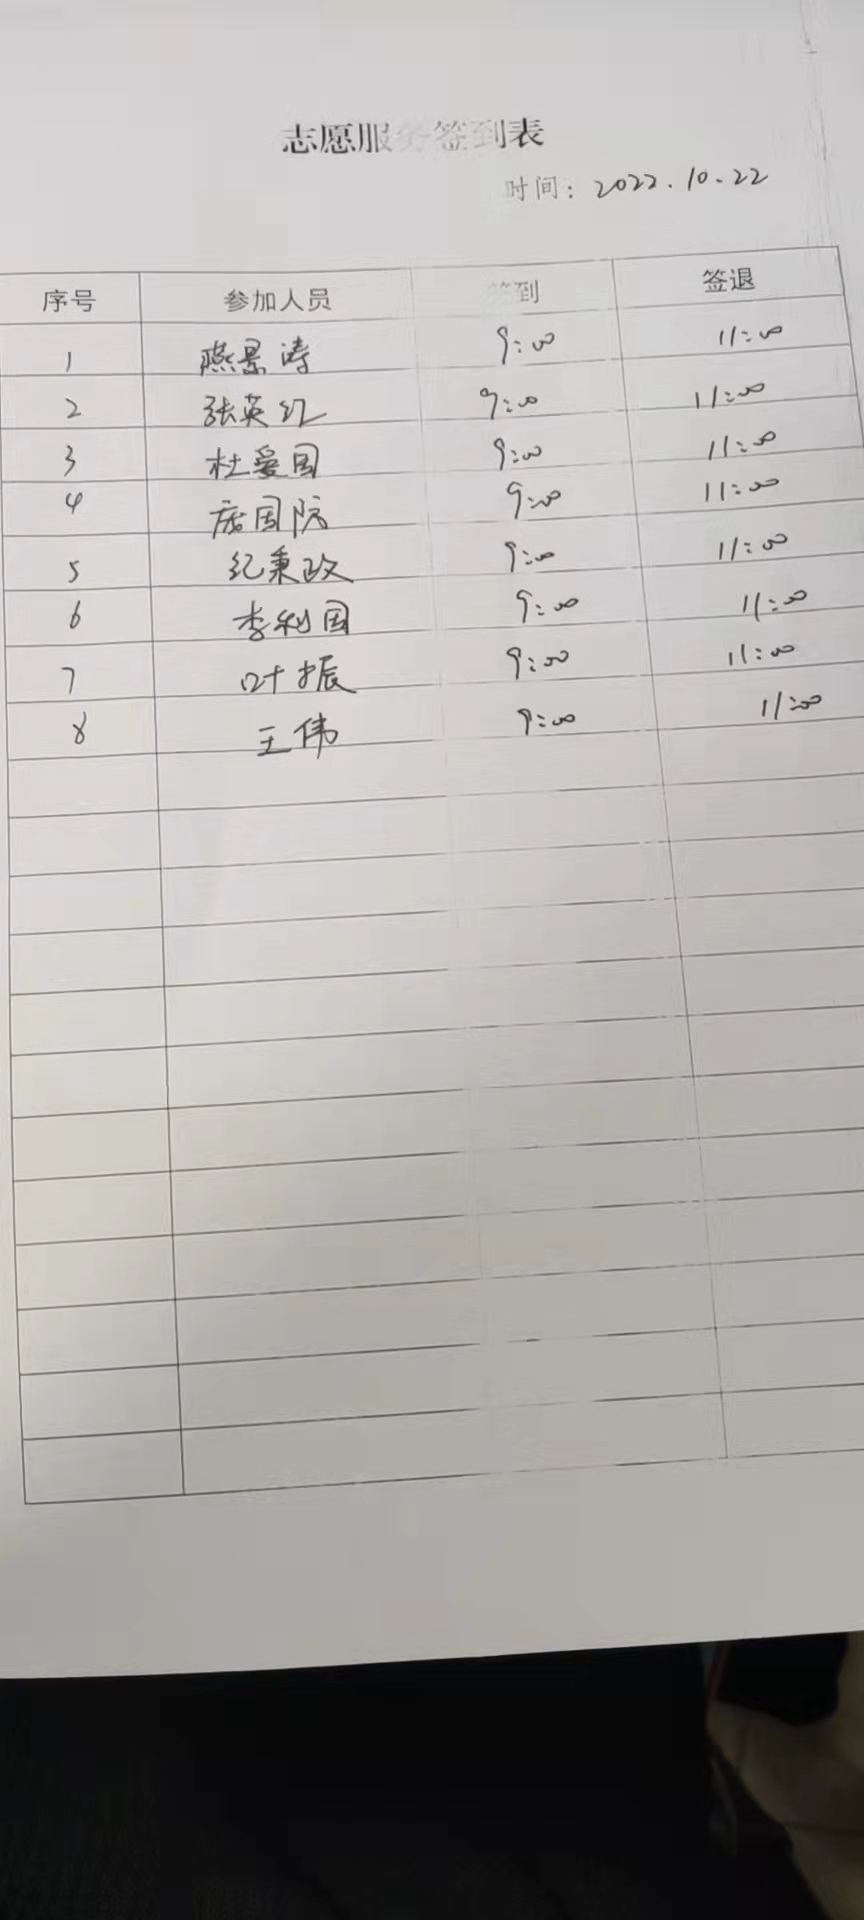 志愿服务签到表
时间：2022.10.22
序号 参加人员 签到 签退
1 燕景涛 9:00 11:00
2 张英红 9:00 11:00
3 杜爱国 9:00 11:00
4 庞国院 9:00 11:00
5 纪秉政 9:00 11:00
6 李利国 9:00 11:00
7 叶振 9:00 11:00
8 王伟 9:00 11:00